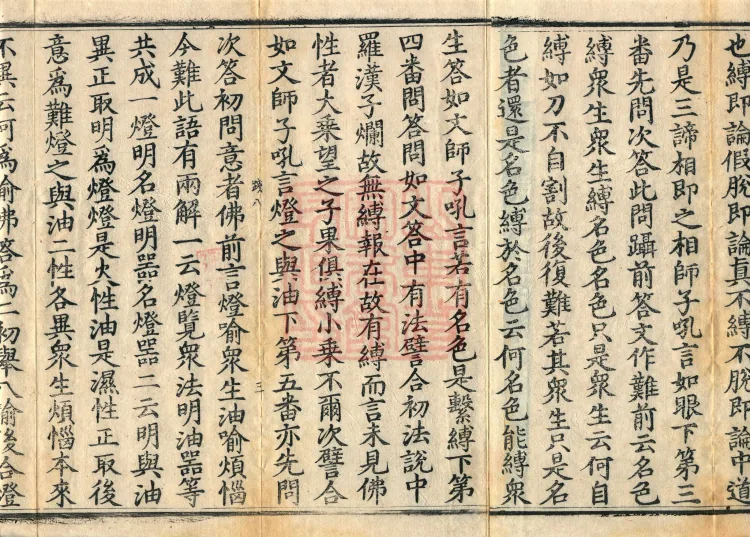 也縛即論假脫即論真不縛不脫即論中道
乃是三諦相即之相師子吼言如眼下第三
畨先問次答此問躡前答文作難前云名色
縛衆生衆生縛名色名色只是衆生云何自
縛如刀不自割故後復難若其衆生只是名
色者還是名色縛於名色云何名色能縛衆
生答如文師子吼言若有名色是繫縛下第
四番問答問如文答中有法譬合初法說中
羅漢子爛故無縛報在故有縛而言未見佛
性者大乗望之子果俱縛小乗不爾次譬合
如文師子吼言燈之與油下第五番亦先問
踐八
三
次答初問意者佛前言燈喻衆生油喻煩惱
今難此語有兩解一云燈覽衆法明油器等
共成一燈明名燈明器名燈器二云明與油
異正取明爲燈燈是火性油是濕性正取後
意爲難燈之與油二性各異衆生煩惱本來
不異云何爲喻佛答爲二初舉八喻後合燈